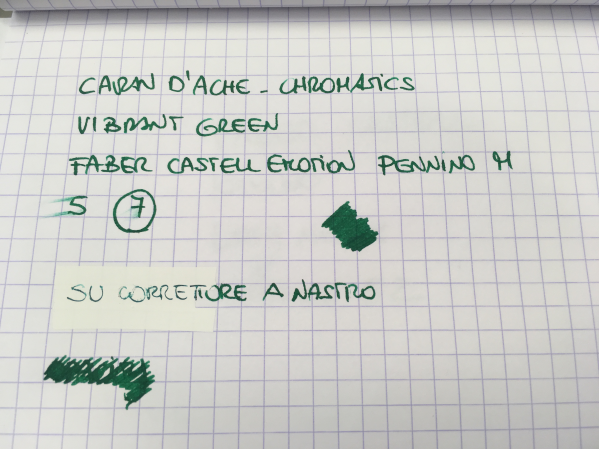 CARAN D'ACHE - CHROMATICS
VIBRANT GREEN
FABER CASTELL EMOTION PENNINO M
5 7
SU CORRETTORE A NASTRO